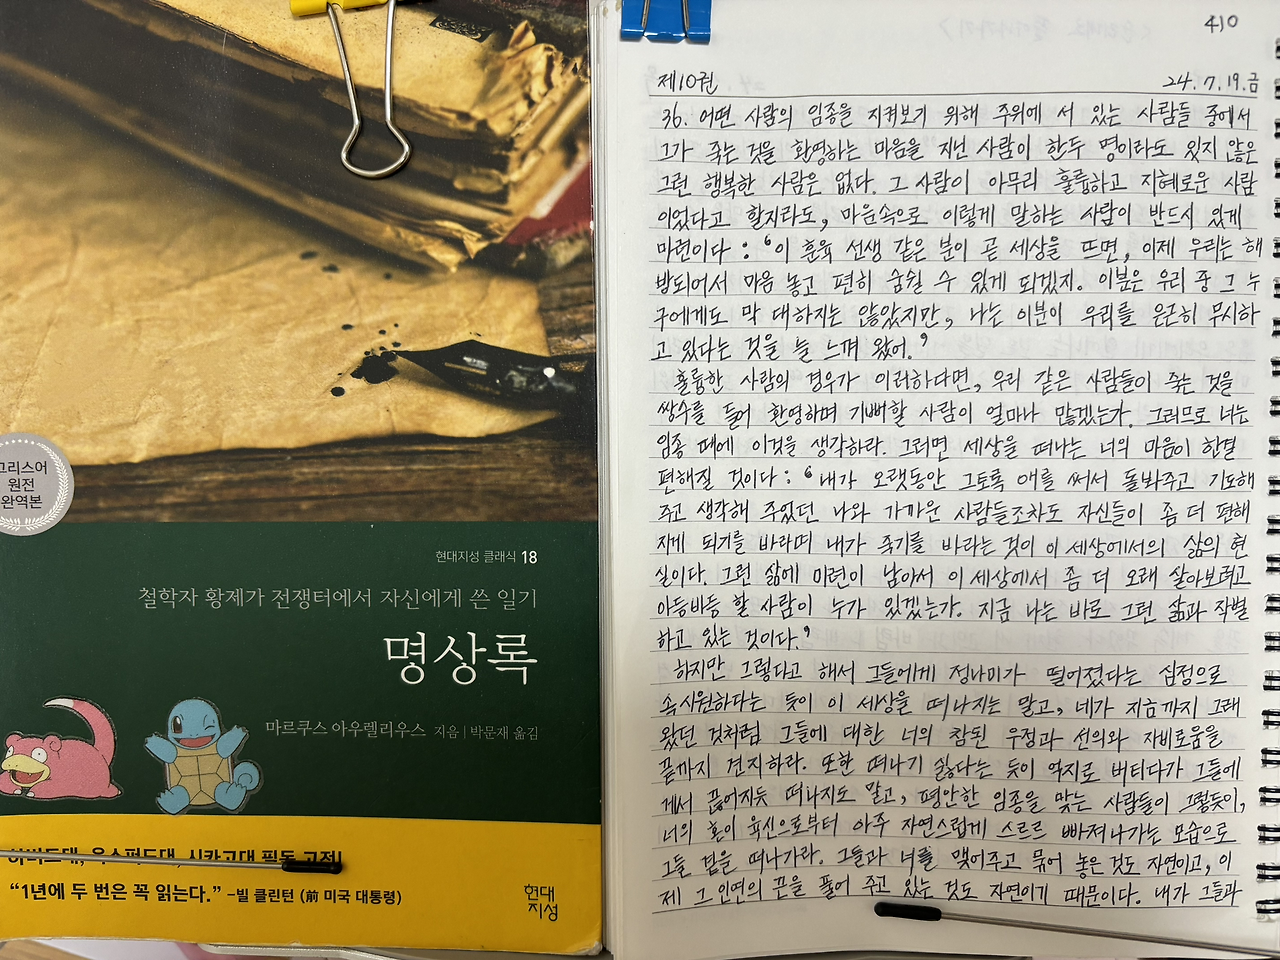 그리스어
원전
완역본
현대지성 클래식 18
철학자 황제가 전쟁터에서 자신에게 쓴 일기
명상록
마르쿠스 아우렐리우스 지음 | 박문재 옮김
하버드대, 옥스퍼드대, 시카고대 필독 고전!
“1년에 두 번은 꼭 읽는다.” –빌 클린턴 (前 미국 대통령)
현대
지성
410
제10권 24.7.19.금
36. 어떤 사람의 임종을 지켜보기 위해 주위에 서 있는 사람들 중에서
그가 죽는 것을 환영하는 마음을 지닌 사람이 한두 명이라도 있지 않은
그런 행복한 사람은 없다. 그 사람이 아무리 훌륭하고 지혜로운 사람
이었다고 할지라도, 마음속으로 이렇게 말하는 사람이 반드시 있게
마련이다 : ‘이 훈육 선생 같은 분이 곧 세상을 뜨면, 이제 우리는 해
방되어서 마음 놓고 편히 숨쉴 수 있게 되겠지. 이분은 우리 중 그 누
구에게도 막 대하지는 않았지만, 나는 이분이 우리를 은근히 무시하
고 있다는 것을 늘 느껴 왔어.’
훌륭한 사람의 경우가 이러하다면, 우리 같은 사람들이 죽는 것을
쌍수를 들어 환영하며 기뻐할 사람이 얼마나 많겠는가. 그러므로 너는
임종 때에 이것을 생각하라. 그러면 세상을 떠나는 너의 마음이 한결
편해질 것이다 : ‘내가 오랫동안 그토록 애를 써서 돌봐주고 기도해
주고 생각해 주었던 나와 가까운 사람들조차도 자신들이 좀 더 편해
지게 되기를 바라며 내가 죽기를 바라는 것이 이 세상에서의 삶의 현
실이다. 그런 삶에 미련이 남아서 이 세상에서 좀 더 오래 살아보려고
아등바등 할 사람이 누가 있겠는가. 지금 나는 바로 그런 삶과 작별
하고 있는 것이다.’
하지만 그렇다고 해서 그들에게 정나미가 떨어졌다는 심정으로
속시원하다는 듯이 이 세상을 떠나지는 말고, 네가 지금까지 그래
왔던 것처럼 그들에 대한 너의 참된 우정과 선의와 자비로움을
끝까지 견지하라. 또한 떠나기 싫다는 듯이 억지로 버티다가 그들에
게서 끊어지듯 떠나지도 말고, 평안한 임종을 맞는 사람들이 그렇듯이,
너의 혼이 육신으로부터 아주 자연스럽게 스르르 빠져나가는 모습으로
그들 곁을 떠나가라. 그들과 너를 맺어주고 묶어 놓은 것도 자연이고, 이
제 그 인연의 끈을 풀어 주고 있는 것도 자연이기 때문이다. 내가 그들과